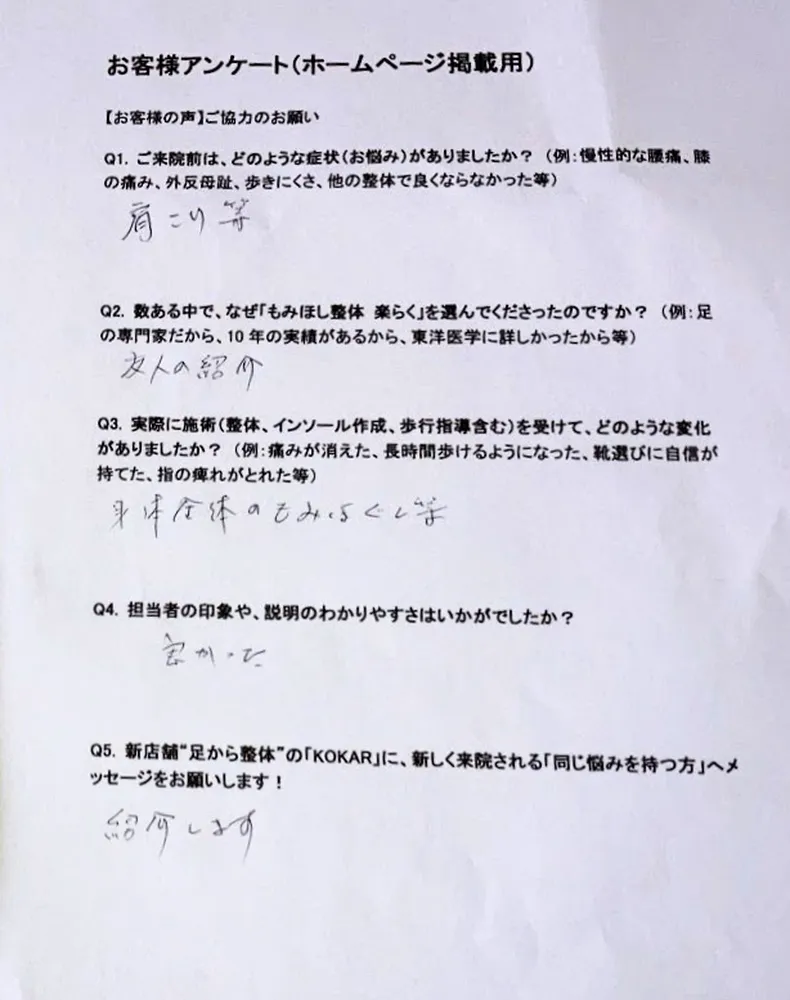 お客様アンケート(ホームページ掲載用)
【お客様の声】ご協力のお願い
Q1. ご来院前は、どのような症状(お悩み)がありましたか? (例:慢性的な腰痛、膝
の痛み、外反母趾、歩きにくさ、他の整体で良くならなかった等)
肩こり等
Q2. 数ある中で、なぜ「もみほし整体 楽らく」を選んでくださったのですか? (例:足
の専門家だから、10年の実績があるから、東洋医学に詳しかったから等)
友人の紹介
Q3. 実際に施術(整体、インソール作成、歩行指導含む)を受けて、どのような変化
がありましたか? (例:痛みが消えた、長時間歩けるようになった、靴選びに自信が
持てた、指の痺れがとれた等)
身体全体のもみほぐし等
Q4. 担当者の印象や、説明のわかりやすさはいかがでしたか?
良かった
Q5. 新店舗“足から整体”の「KOKAR」に、新しく来院される「同じ悩みを持つ方」へメ
ッセージをお願いします!
紹介します